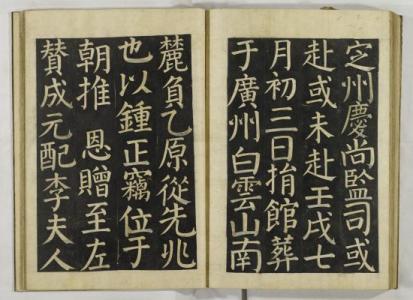 定州慶尚監司或
赴或未赴壬戌七
月初三日捐館葬
于廣州白雲山南
麓負乙原從先兆
也以鍾正竊位于
朝推 恩贈至左
賛成元配李夫人